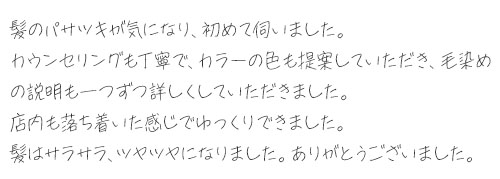 髪のパサツキが気になり、初めて伺いました。
カウンセリングも丁寧で、カラーの色も提案していただき、毛染め
の説明も一つずつ詳しくしていただきました。
店内も落ち着いた感じでゆっくりできました。
髪はサラサラ、ツヤツヤになりました。ありがとうございました。